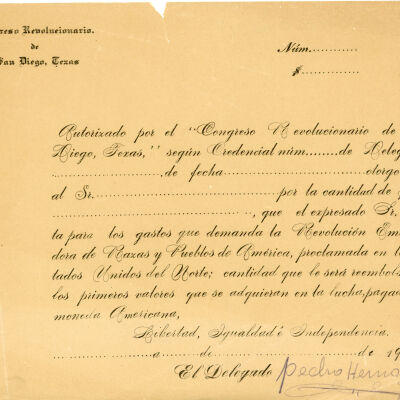 reso Revolucionario.
de
San Diego, Texas
Núm............
$..............
Autorizado por el "Congreso Revolucionario de
Diego, Texas," según Credencial núm.......de Deleg
..........................de fecha..........................otorgo
al Sr...........................................por la cantidad de
............................................., que el expresado Sr.
ta para los gastos que demanda la Revolución Em
dora de Razas y Pueblos de América, proclamada en l
tados Unidos del Norte; cantidad que le será reembols
los primeros valores que se adquieran en la lucha, pagad
moneda Americana,
Libertad, Igualdad é Independencia.
.......................a......de..................................de 19
El Delegado Pedro